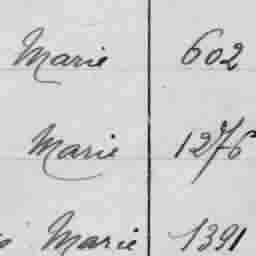 Marie 602
Marie 1276
Marie 1391